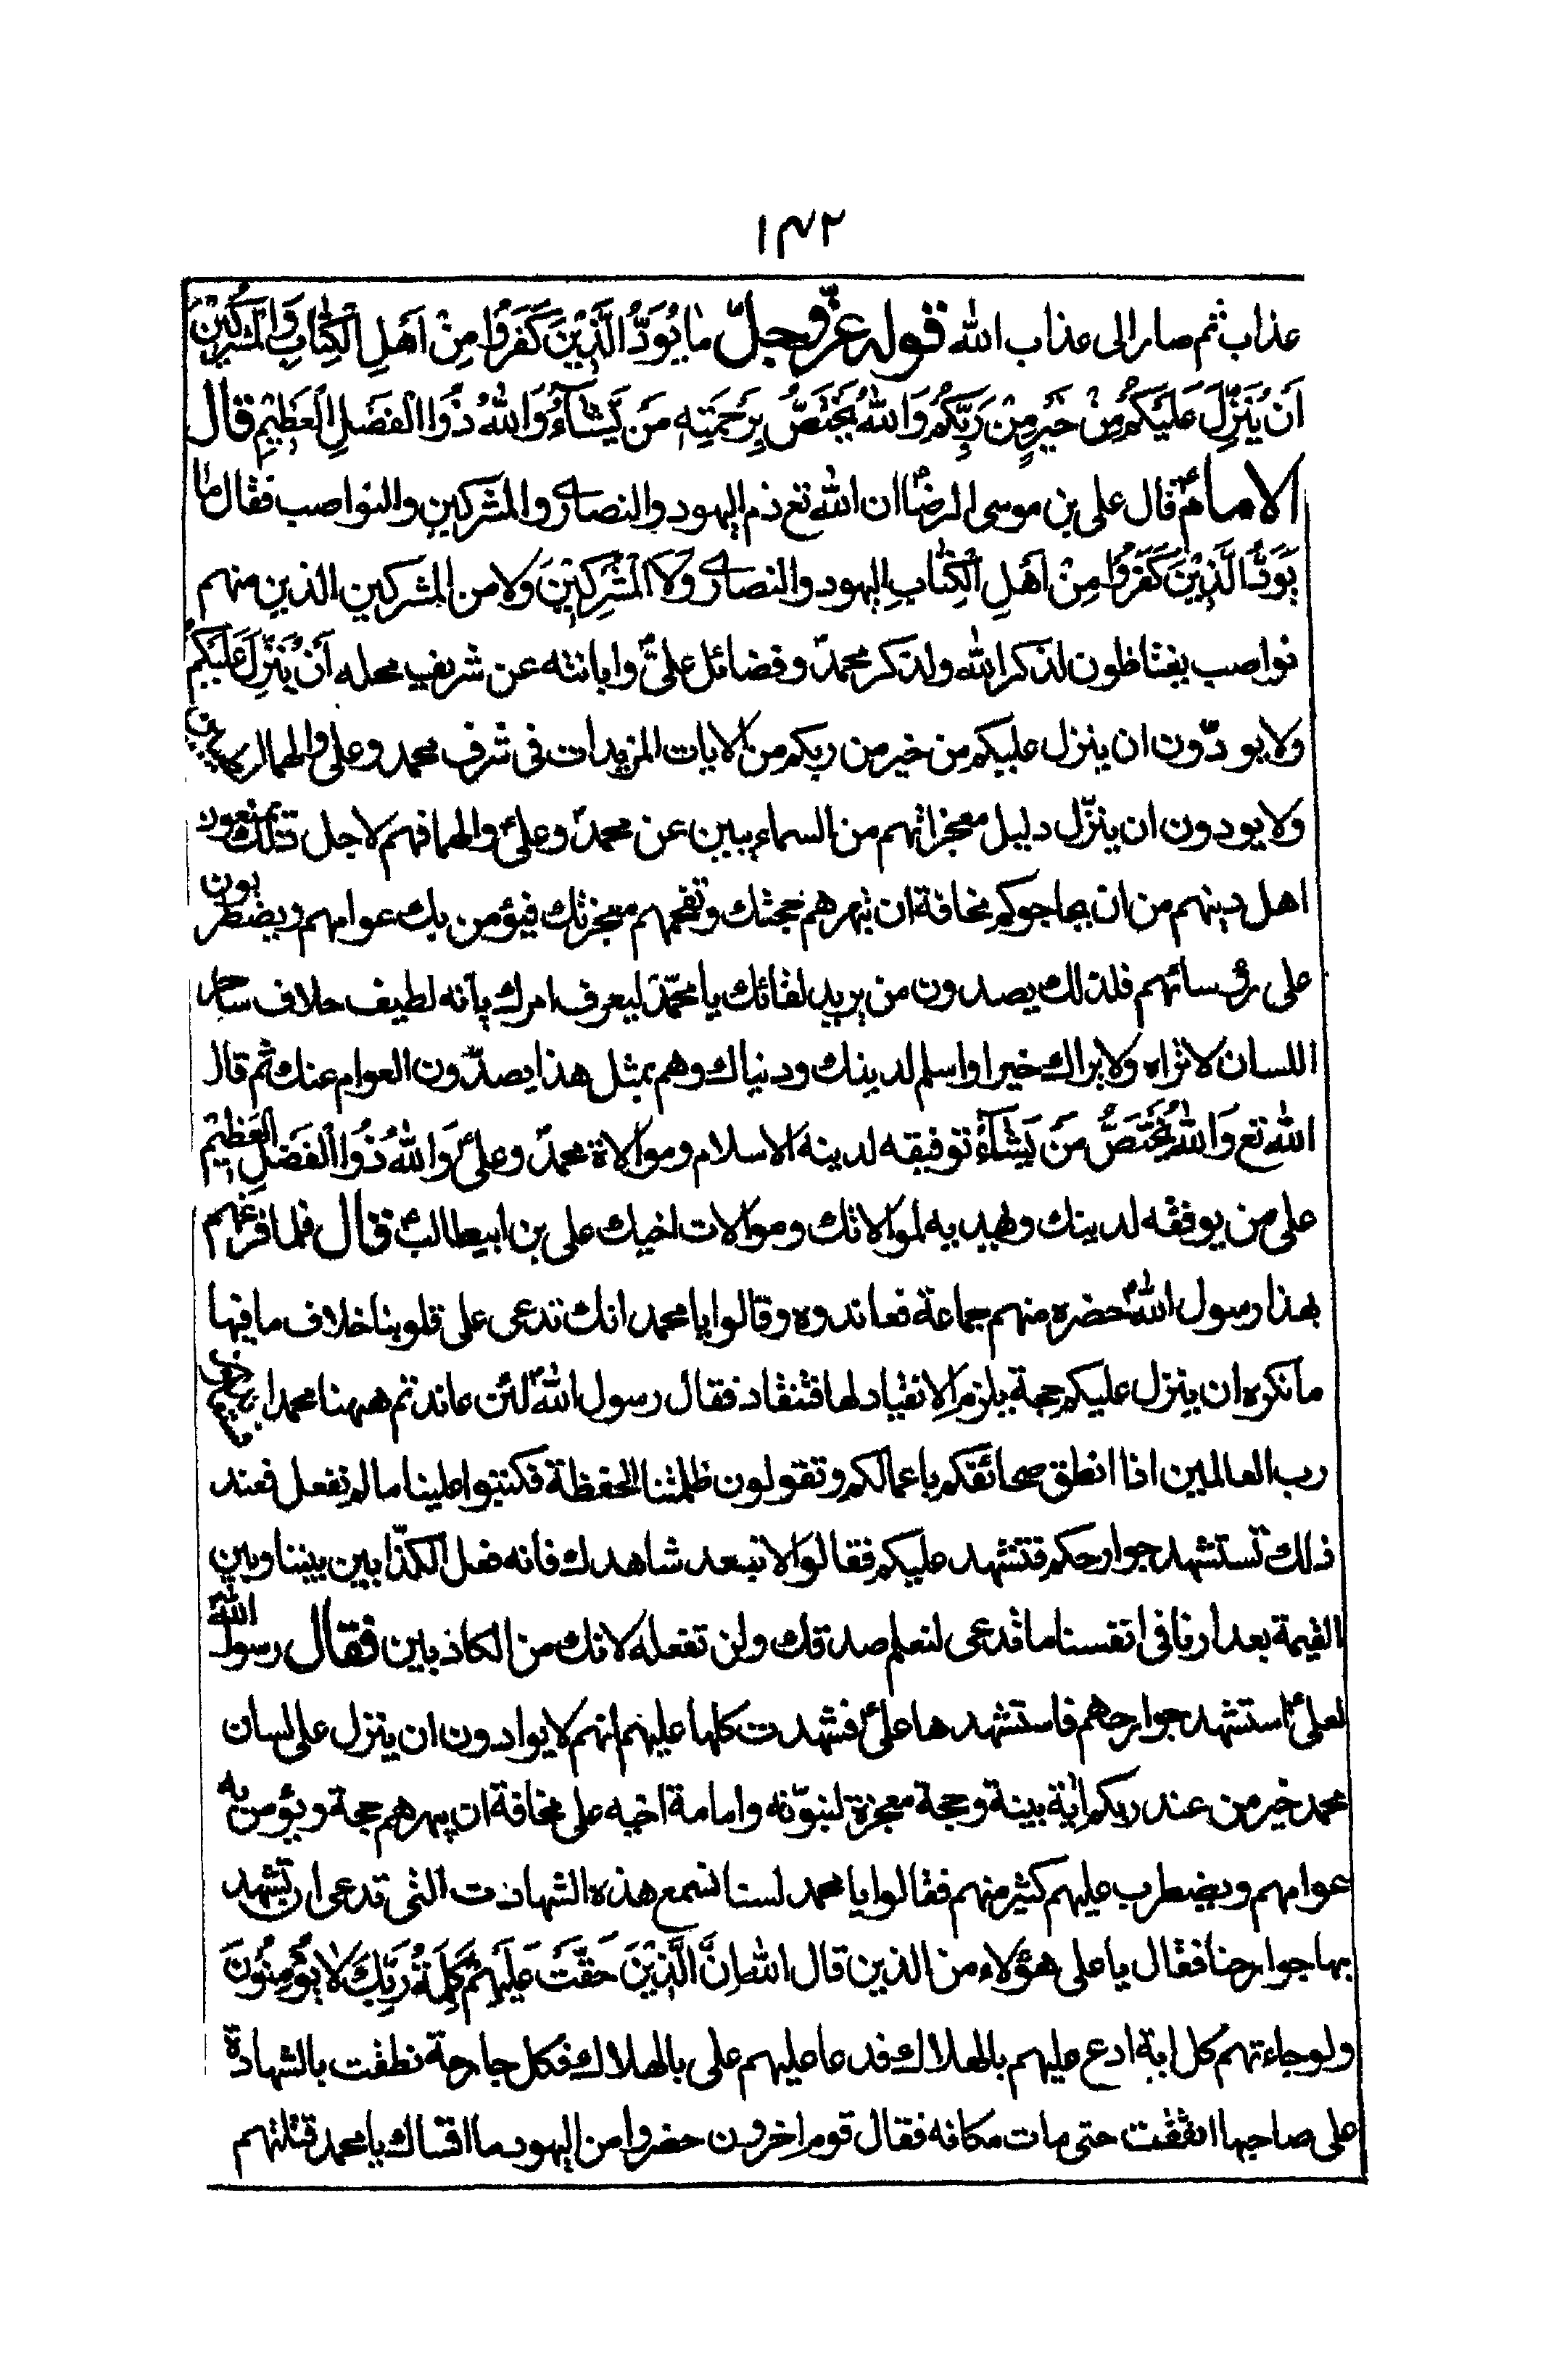 ١٩٢
عذاب ثم صار الى عذاب الله قوله عزّ وجلّ ما يَوَدُّ الَّذِيْنَ كَفَرُوا مِنْ اَهْلِ الْكِتَابِ وَلَا الْمُشْرِكِيْنَ
اَنْ يُنَزَّلَ عَلَيْكُمْ مِنْ خَيْرٍ مِنْ رَبِّكُمْ وَاللهُ يَخْتَصُّ بِرَحْمَتِهِ مَنْ يَّشَآءُ وَاللهُ ذُوا الْفَضْلِ الْعَظِيْمِ قال
الامامؑ قال على بن موسى الرضاؑ ان الله تع ذم اليهود والنصارى والمشركين والنواصب فقال ما
يَوَدُّ الَّذِيْنَ كَفَرُوْا مِنْ اَهْلِ الْكِتَابِ اليهود والنصارى وَلَا الْمُشْرِكِيْنَ ولا من المشركين الذين منهم
نواصب يغتاظون لذكر الله ولذكر محمدؐ وفضائل علىؑ وابانته عن شريف محله اَنْ يُنَزَّلَ عَلَيْكُمْ
ولا يودّون ان ينزل عليكم من خير من ربكم من الايات المزيدات فى شرف محمد وعلى والهما الطيبين
ولا يودون ان ينزّل دليل معجزاتهم من السماء يبين عن محمدؐ وعلىؑ والهما فهم لاجل ذلك يمنعون
اهل دينهم من ان يحاجوكم مخافة ان تبهرهم حجتك وتفحمهم معجزتك فيؤمن بك عوامهم ويضطربون
على رؤسائهم فلذلك يصدون من يريد لقائك يا محمّدؐ ليعرف امرك بانه لطيف خلاف ساحر
اللسان لا تراه ولا يراك خيرا واسلم لدينك ودنياك وهم بمثل هذا يصدّون العوام عنك ثم قال
الله تع وَاللهُ يَخْتَصُّ مَنْ يَشَآءُ توفيقه لدينه الاسلام وموالاة محمدؐ وعلىؑ وَاللهُ ذُوا الْفَضْلِ الْعَظِيْمِ
على من يوفقه لدينك ويهديه لموالاتك وموالات اخيك على بن ابيطالبؑ قال فلما قرعهم
بهذا رسول اللهؐ حضره منهم جماعة فعاندوه وقالوا يا محمد انك تدعى على قلوبنا خلاف ما فيها
ما نكره ان ينزل عليكم حجة يلزم الانقياد لها فننقاد فقال رسول اللهؐ لئن عاندتم ههنا محمدا
رب العالمين اذا انطق صحائفكم باعمالكم وتقولون ظلمتنا الحفظة فكتبوا علينا ما لم نفعل فعند
ذلك تستشهد جوارحكم فتشهد عليكم فقالوا لا تبعد شاهدك فانه فعل الكذّابين بيننا وبين
القيمة بعد ارنا فى انفسنا ما تدعى لنعلم صدقك ولن تفعله لانك من الكاذبين فقال رسول اللهؐ
لعلىؑ استشهد جوارحهم فاستشهدها علىؑ فشهدت كلها عليهم انهم لا يوادون ان ينزل على لسان
محمد خير من عند ربكم اية بينة وحجة معجزة لنبوّته وامامة اخيه على مخافة ان يبهرهم حجة ويؤمن به
عوامهم ويضطرب عليهم كثير منهم فقالوا يا محمد لسنا نسمع هذه الشهادت التى تدعى ان تشهد
بها جوارحنا فقال يا على هؤلاء من الذين قال الله اِنَّ الَّذِيْنَ حَقَّتْ عَلَيْهِمْ كَلِمَةُ رَبِّكَ لَا يُؤْمِنُوْنَ
ولو جاءتهم كل اية ادع عليهم بالهلاك فدعا عليهم على بالهلاك فكل جارحة نطقت بالشهادة
على صاحبها انفتقت حتى مات مكانه فقال قوم اخرون حضروا من اليهود ما اقساك يا محمد قتلتهم